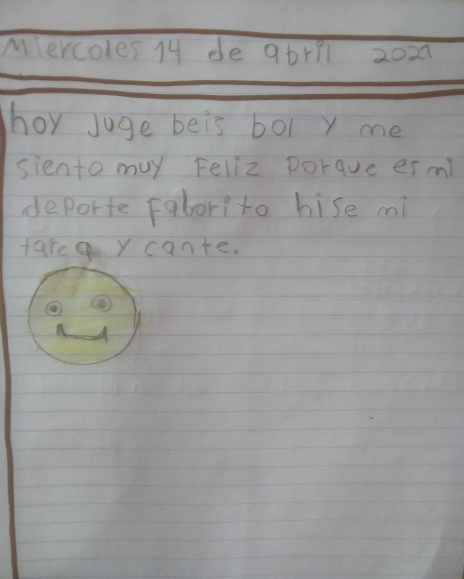 Miercoles 14 de abril 2021
hoy Juge beis bol y me
siento muy Feliz Porque es mi
deporte Faborito hise mi
tarea y cante.